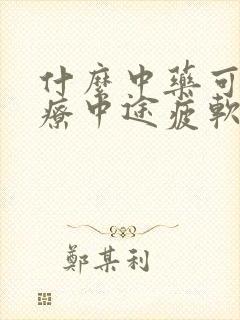 什麼中藥可
療中途疲軟
鄭某利